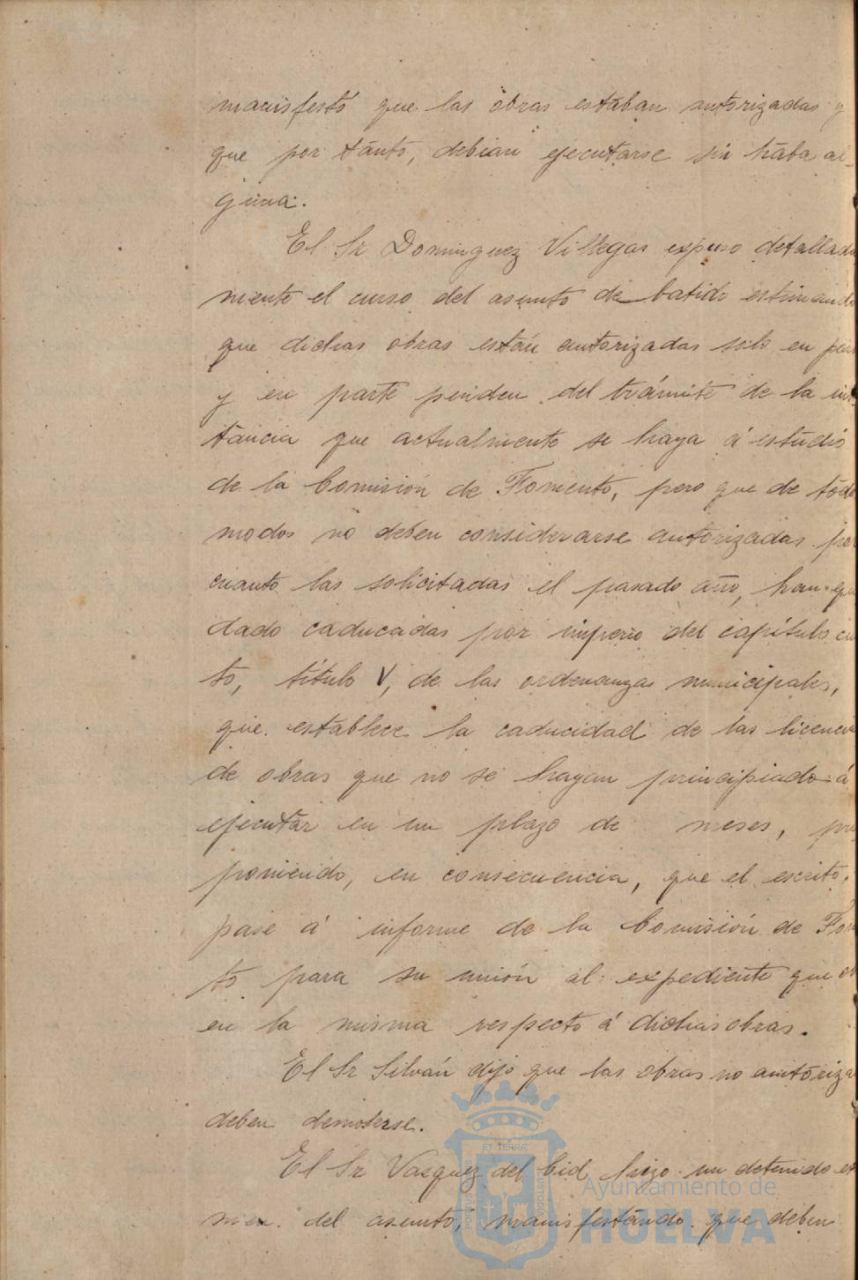 manifestó que las obras estaban autorizadas y
que por tanto, debian ejecutarse sin traba al-
guna.
El Sr Dominguez Villegas expuso detallada
mente el curso del asunto de batido estimando
que dichas obras están autorizadas solo en par
y en parte penden del trámite de la ins
tancia que actualmente se haya á estudio
de la Comisión de Fomento, pero que de todo
modos no deben considerarse autorizadas por
cuanto las solicitadas el pasado año, han que
dado caducadas por imperio del capítulo cu
to, título V, de las ordenanzas municipales,
que establece la caducidad de las licencia
de obras que no se hayan principiado á
ejecutar en un plazo de meses, pro
poniendo, en consecuencia, que el escrito
pase á informe de la Comisión de Fom
to para su unión al expediente que
en la misma respecto á dichas obras.
El Sr Silván dijo que las obras no autoriza
deben demolerse.
El Sr Vazquez del Cid, hizo un detenido ex
men del asunto, manifestando que deben
Ayuntamiento de
HUELVA